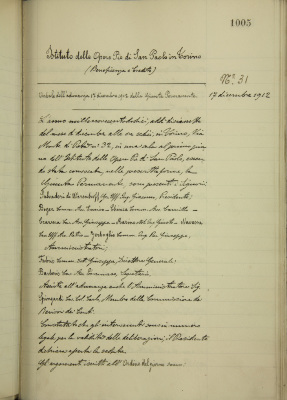 1005
Istituto delle Opere Pie di San Paolo in Torino
(Beneficenza e Credito)
N.° 31
Verbale dell'adunanza 17 dicembre 1912 della Giunta Permanente.
17 dicembre 1912
L'anno millenovecentododici addì diciassette
del mese di dicembre alle ore sedici, in Torino, Via
Monte di Pietà n.° 32, in una sala al primo pia-
no dell'Istituto delle Opere Pie di San Paolo, essen-
do stata convocata, nella prescritta forma, la
Giunta Permanente, sono presenti i Signori:
Gr. Uff. Ing. Giacomo, Presidente;
Comm. Avv. Enrico - Comm. Avv. Camillo -
Avv. Giuseppe -
Avv. Pietro - Comm. Ing. Giuseppe,
Amministratori;
Comm. Dott. Giuseppe, Direttore Generale;
Cav. Avv. Segretario.
Assiste all'adunanza anche l'Amministratore Sig.
Cav. Col. Carlo, Membro della Commissione di
Revisione dei Conti.
Constatato che gli intervenuti sono in numero
legale per la validità delle deliberazioni, il Presidente
dichiara aperta la seduta.
Gli argomenti iscritti all'Ordine del giorno sono: